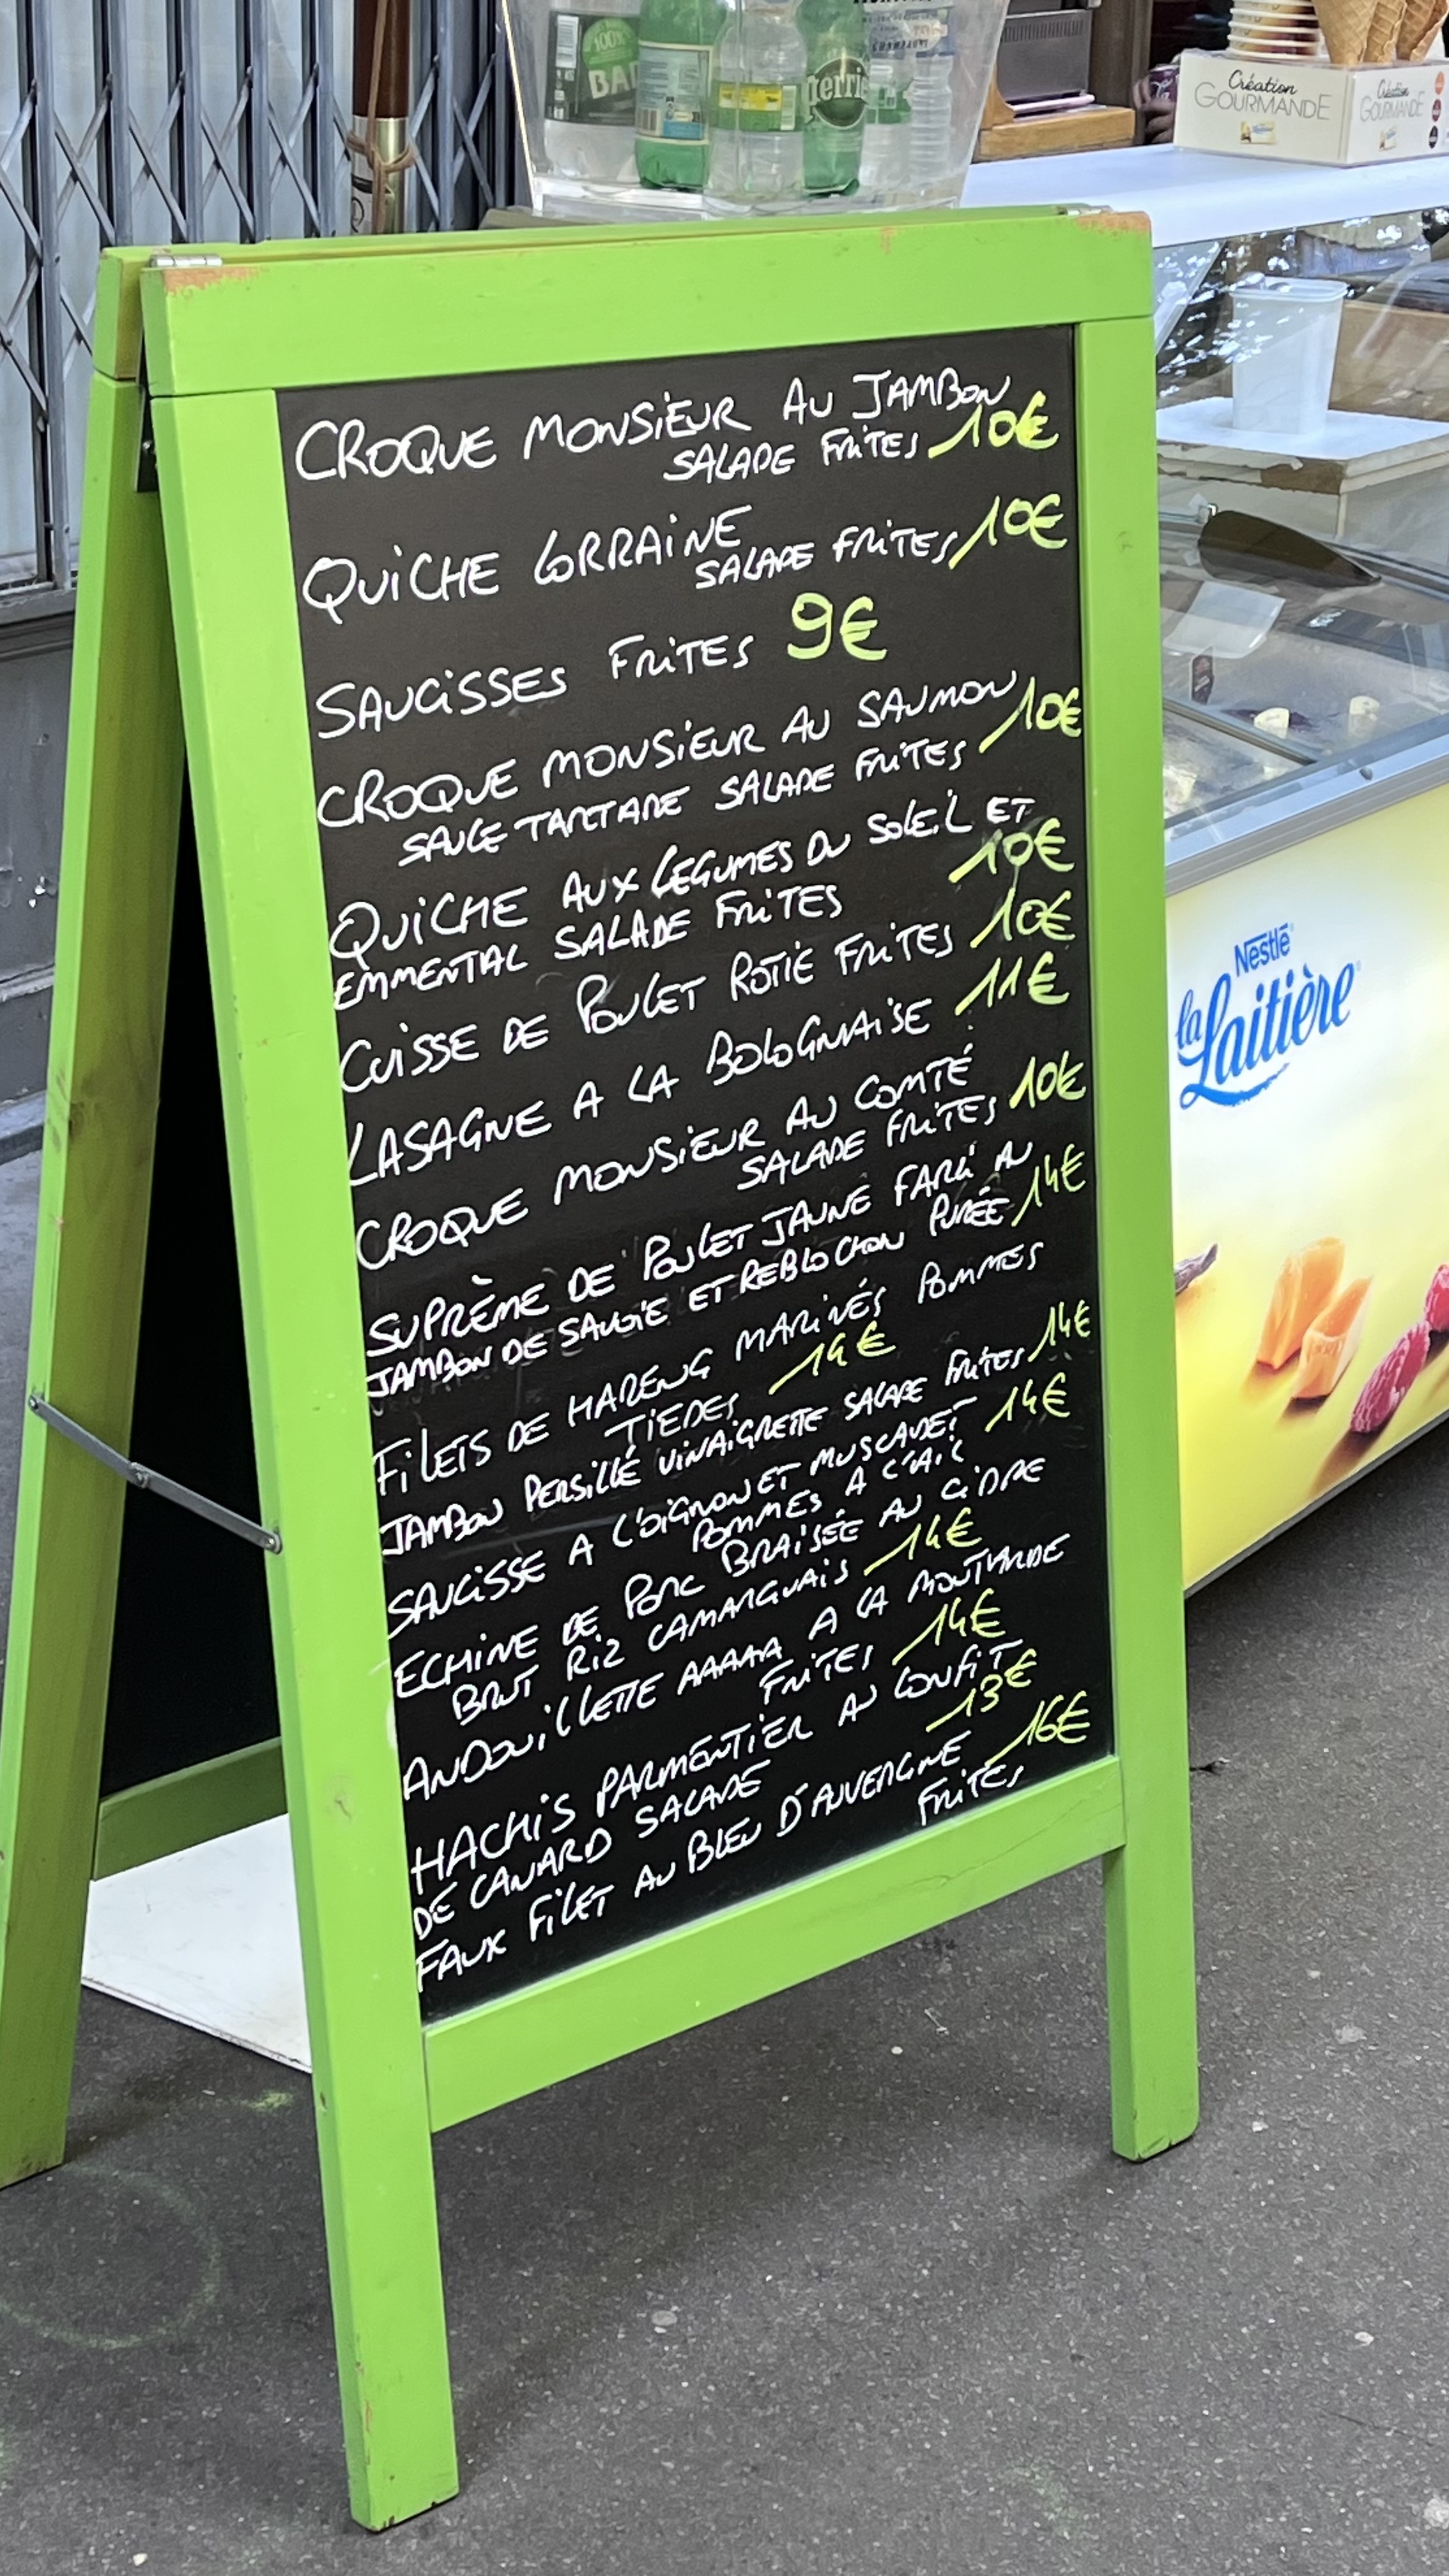 100%
BA
perrie
Création
GOURMANDE
Création
GOURMANDE
CROQUE MONSIEUR AU JAMBON
SALADE FRITES 10€
QUICHE LORRAINE
SALADE FRITES 10€
SAUCISSES FRITES 9€
CROQUE MONSIEUR AU SAUMON 10€
SAUCE TARTARE SALADE FRITES
QUICHE AUX LEGUMES DU SOLEIL ET
EMMENTAL SALADE FRITES 10€
CUISSE DE POULET ROTIE FRITES 10€
LASAGNE A LA BOLOGNAISE 11€
CROQUE MONSIEUR AU COMTÉ
SALADE FRITES 10€
SUPRÈME DE POULET JAUNE FARCI AU
JAMBON DE SAVOIE ET REBLOCHON PURÉE 14€
FILETS DE HARENG MARINÉS POMMES
TIEDES 14€
JAMBON PERSILLÉ VINAIGRETTE SALADE FRITES 14€
SAUCISSE A L'OIGNON ET MUSCADET 14€
POMMES A L'AIL
ECHINE DE PORC BRAISÉE AU CIDRE
BRUT RIZ CAMARGUAIS 14€
ANDOUILLETTE AAAAA A LA MOUTARDE
FRITES 14€
HACHIS PARMENTIER AU CONFIT
DE CANARD SALADE 13€
FAUX FILET AU BLEU D'AUVERGNE 16€
FRITES
Nestlé
la Laitière